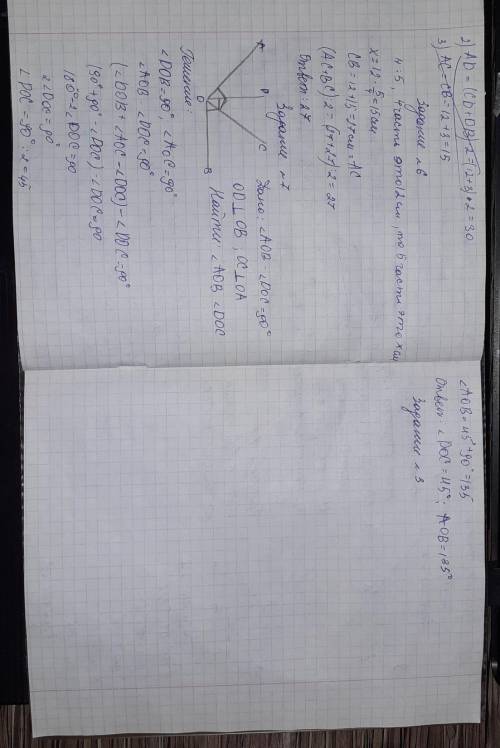 2) AD = (CD+DB)·2 = (12+3)·2 = 30
3) AC = CB = 12+3 = 15
Задание 6
4:5, 4 части это 12 см, то 5 части это x см
CB = 12+15 = 27 см = AC
(AC+BC) 2 = (27+27) 2 = 27
Ответ: 27
Задание 7
Дано: ∠AOB - ∠DOC = 90°
OD ⊥ OB, OC ⊥ OA
Найти: ∠AOB ∠DOC
A
D
C
O
B
Решение:
∠DOB = 90°, ∠AOC = 90°
∠AOB ∠DOC = 90°
(∠DOB + ∠AOC - ∠DOC) - ∠DOC = 90°
(90° + 90° ∠DOC) - ∠DOC = 90
180° - 2∠DOC = 90
2∠DOC = 90°
∠DOC = 90° : 2 = 45
∠AOB = 45° + 90° = 135
Ответ: ∠DOC = 45°; AOB = 135°
Задание 3